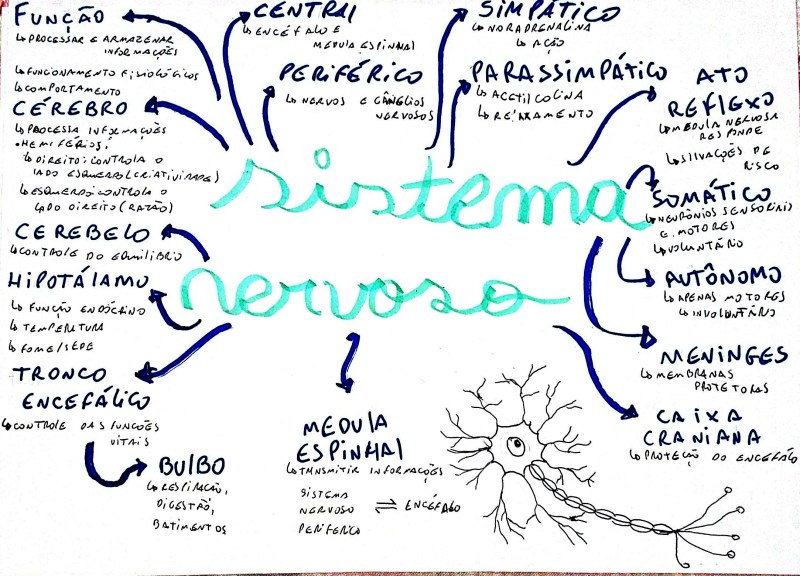 FUNÇÃO
↳ PROCESSAR E ARMAZENAR
INFORMAÇÕES
↳ FUNCIONAMENTO FISIOLÓGICOS
↳ COMPORTAMENTO
CÉREBRO
↳ PROCESSA INFORMAÇÕES
• HEMIFÉRIOS:
↳ DIREITO: CONTROLA O
LADO ESQUERDO (CRIATIVIDADE)
↳ ESQUERDO: CONTROLA O
LADO DIREITO (RAZÃO)
CEREBELO
↳ CONTROLE DO EQUILÍBRIO
HIPOTÁLAMO
↳ FUNÇÃO ENDÓCRINO
↳ TEMPERATURA
↳ FOME/SEDE
TRONCO
ENCEFÁLICO
↳ CONTROLE DAS FUNÇÕES
VITAIS
BULBO
↳ RESPIRAÇÃO,
DIGESTÃO,
BATIMENTOS
CENTRAL
↳ ENCÉFALO E
MEDULA ESPINHAL
PERIFÉRICO
↳ NERVOS E GÂNGLIOS
NERVOSOS
SIMPÁTICO
↳ NORADRENALINA
↳ AÇÃO
PARASSIMPÁTICO
↳ ACETILCOLINA
↳ RELAXAMENTO
sistema
nervoso
ATO
REFLEXO
↳ MEDULA NERVOSA
RESPONDE
↳ SITUAÇÕES DE
RISCO
SOMÁTICO
↳ NEURÔNIOS SENSORIAIS
E MOTORES
↳ VOLUNTÁRIO
AUTÔNOMO
↳ APENAS MOTORES
↳ INVOLUNTÁRIO
MENINGES
↳ MEMBRANAS
PROTETORAS
CAIXA
CRANIANA
↳ PROTEÇÃO DO ENCÉFALO
MEDULA
ESPINHAL
↳ TRNSMITIR INFORMAÇÕES
SISTEMA
NERVOSO ⇌ ENCÉFALO
PERIFÉRICO